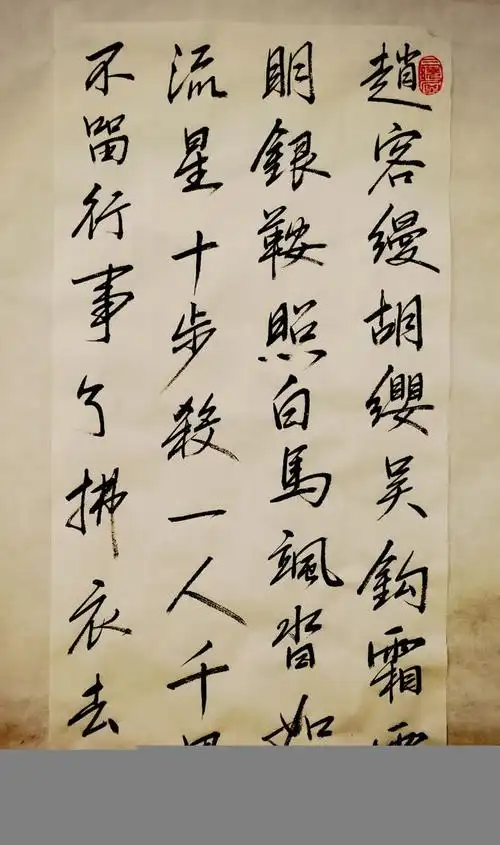 趙客縵胡纓吳鉤霜
明銀鞍照白馬颯沓如
流星十步殺一人千
不留行事了拂衣去